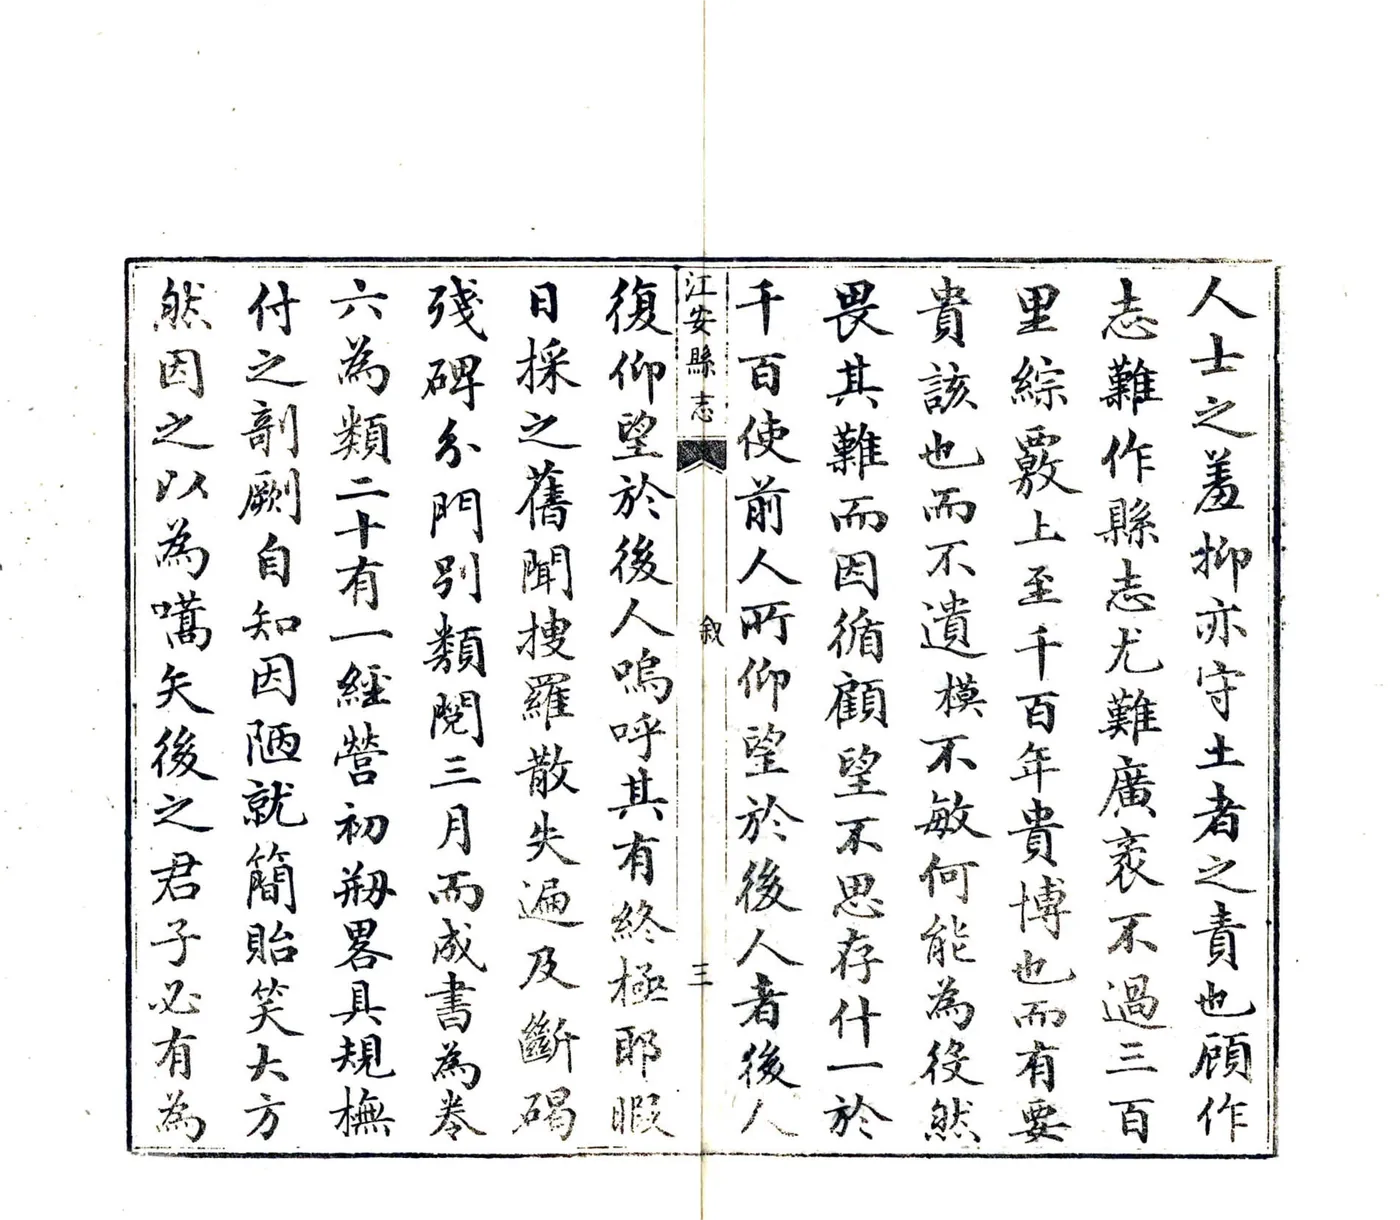 人士之羞抑亦守土者之責也顧作
志難作縣志尤難廣袤不過三百
里綜覈上至千百年貴博也而有要
貴該也而不遺模不敏何能為役然
畏其難而因循顧望不思存什一於
千百使前人所仰望於後人者後人
江安縣志
敘
三
復仰望於後人嗚呼其有終極耶暇
日採之舊聞搜羅散失遍及斷碣
殘碑分門別類閱三月而成書為卷
六為類二十有一經營初剏畧具規橅
付之剞劂自知因陋就簡貽笑大方
然因之以為嚆矢後之君子必有為